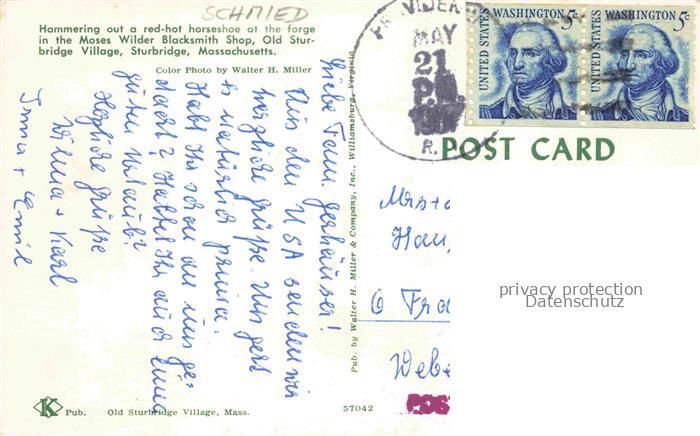 SCHMIED
Hammering out a red-hot horseshoe at the forge
in the Moses Wilder Blacksmith Shop, Old Stur-
bridge Village, Sturbridge, Massachusetts.
Color Photo by Walter H. Miller
Liebe Fam. Gerhäuser!
Aus den USA senden wir
herzliche Grüße. Uns geht
es natürlich prima.
Habt Ihr schon an uns ge-
dacht? Hattet Ihr auch einen
guten Urlaub?
Herzliche Grüße
Wilma + Karl
Irma + Emil
Pub. by Walter H. Miller & Company, Inc., Williamsburg, Virginia
K Pub. Old Sturbridge Village, Mass.
57042
MAY
21
R.
UNITED STATES WASHINGTON 5c
UNITED STATES WASHINGTON 5c
POST CARD
Mrs +
Han
6 Fra
Webe
POS
privacy protection
Datenschutz